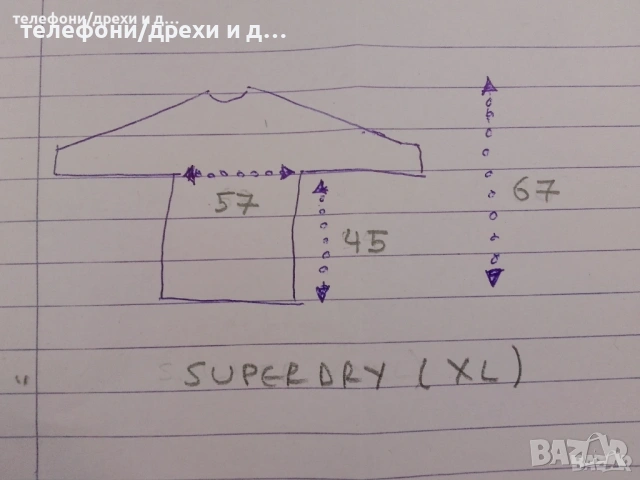 телефони/дрехи и д...
телефони/дрехи и д...
57
45
67
SUPERDRY (XL)
BAZAR